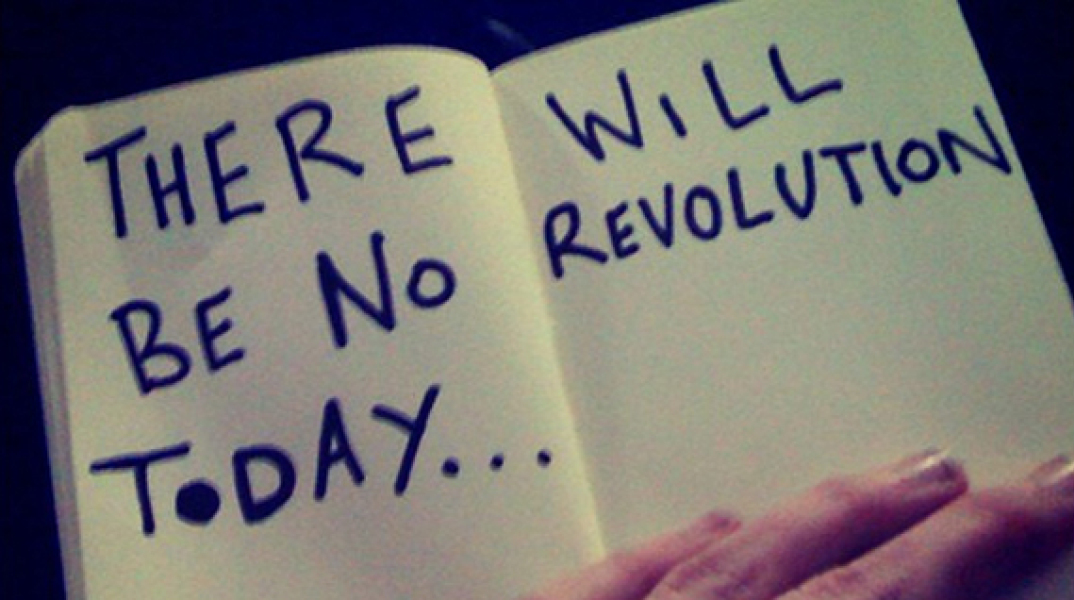 THERE WILL
BE NO REVOLUTION
TODAY...